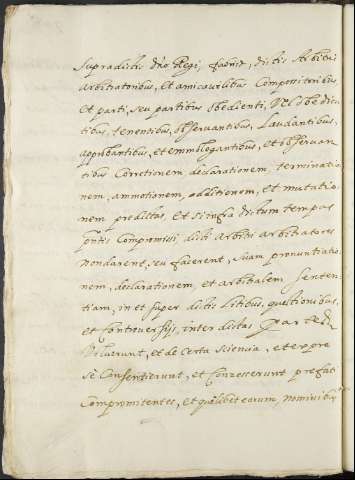 Supradictis dño Regi, faciñt, dictis Arbitris
arbitratoribus, et amicabilibus Compositoribus
et parti, seu partibus obedienti, Vel obedien
tibus, tenentibus, observantibus, Laudantibus,
approbantibus, et emologantibus, et observan
tibus Corretionem, declarationem, terminatio
nem, ammotionem, additionem, et mutatio
nem predictas, et si infra dictum tempus
pñtis Compromissi, dicti Arbitri arbitratores
nondarent, seu facerent, suam pronuntiatio
nem, declarationem, et arbitralem Senten
tiam, in et super dictis Litibus, questionibus,
et Controversijs, inter dictas Partes
Voluerunt, et de Certa Sciencia, et expre
sè Consentierunt, et Conzesserunt prefati
Compromitentes, et quilibet eorum, nominibus